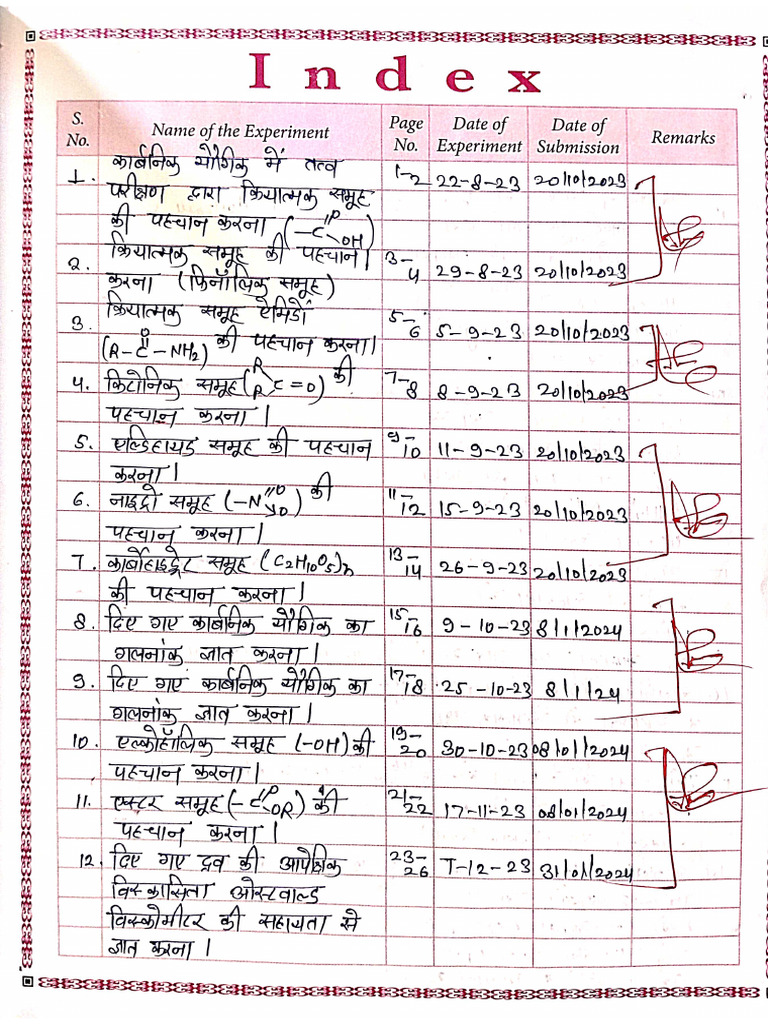 Index
S. No. Name of the Experiment Page No. Date of Experiment Date of Submission Remarks
1. कार्बनिक यौगिक में तत्व 1-2 22-8-23 20/10/2023
परीक्षण द्वारा क्रियात्मक समूह
की पहचान करना (-C=O-OH)
2. क्रियात्मक समूह की पहचान 3-4 29-8-23 20/10/2023
करना (फिनॉलिक समूह)
3. क्रियात्मक समूह ऐमिडों 5-6 5-9-23 20/10/2023
(R-C(=O)-NH2) की पहचान करना।
4. किटोनिक समूह (R R C=O) की 7-8 8-9-23 20/10/2023
पहचान करना।
5. एल्डिहायड समूह की पहचान 9-10 11-9-23 20/10/2023
करना।
6. नाइट्रो समूह (-N=O O) की 11-12 15-9-23 20/10/2023
पहचान करना।
7. कार्बोहाइड्रेट समूह (C2H10O5)n 13-14 26-9-23 20/10/2023
की पहचान करना।
8. दिए गए कार्बनिक यौगिक का 15-16 9-10-23 8/1/2024
गलनांक ज्ञात करना।
9. दिए गए कार्बनिक यौगिक का 17-18 25-10-23 8/1/24
गलनांक ज्ञात करना।
10. एल्कोहॉलिक समूह (-OH) की 19-20 30-10-23 08/01/2024
पहचान करना।
11. एस्टर समूह (-C=O OR) की 21-22 17-11-23 08/01/2024
पहचान करना।
12. दिए गए द्रव की आपेक्षिक 23-26 7-12-23 31/01/2024
विस्कासिता ओस्टवाल्ड
विस्कोमीटर की सहायता से
ज्ञात करना।